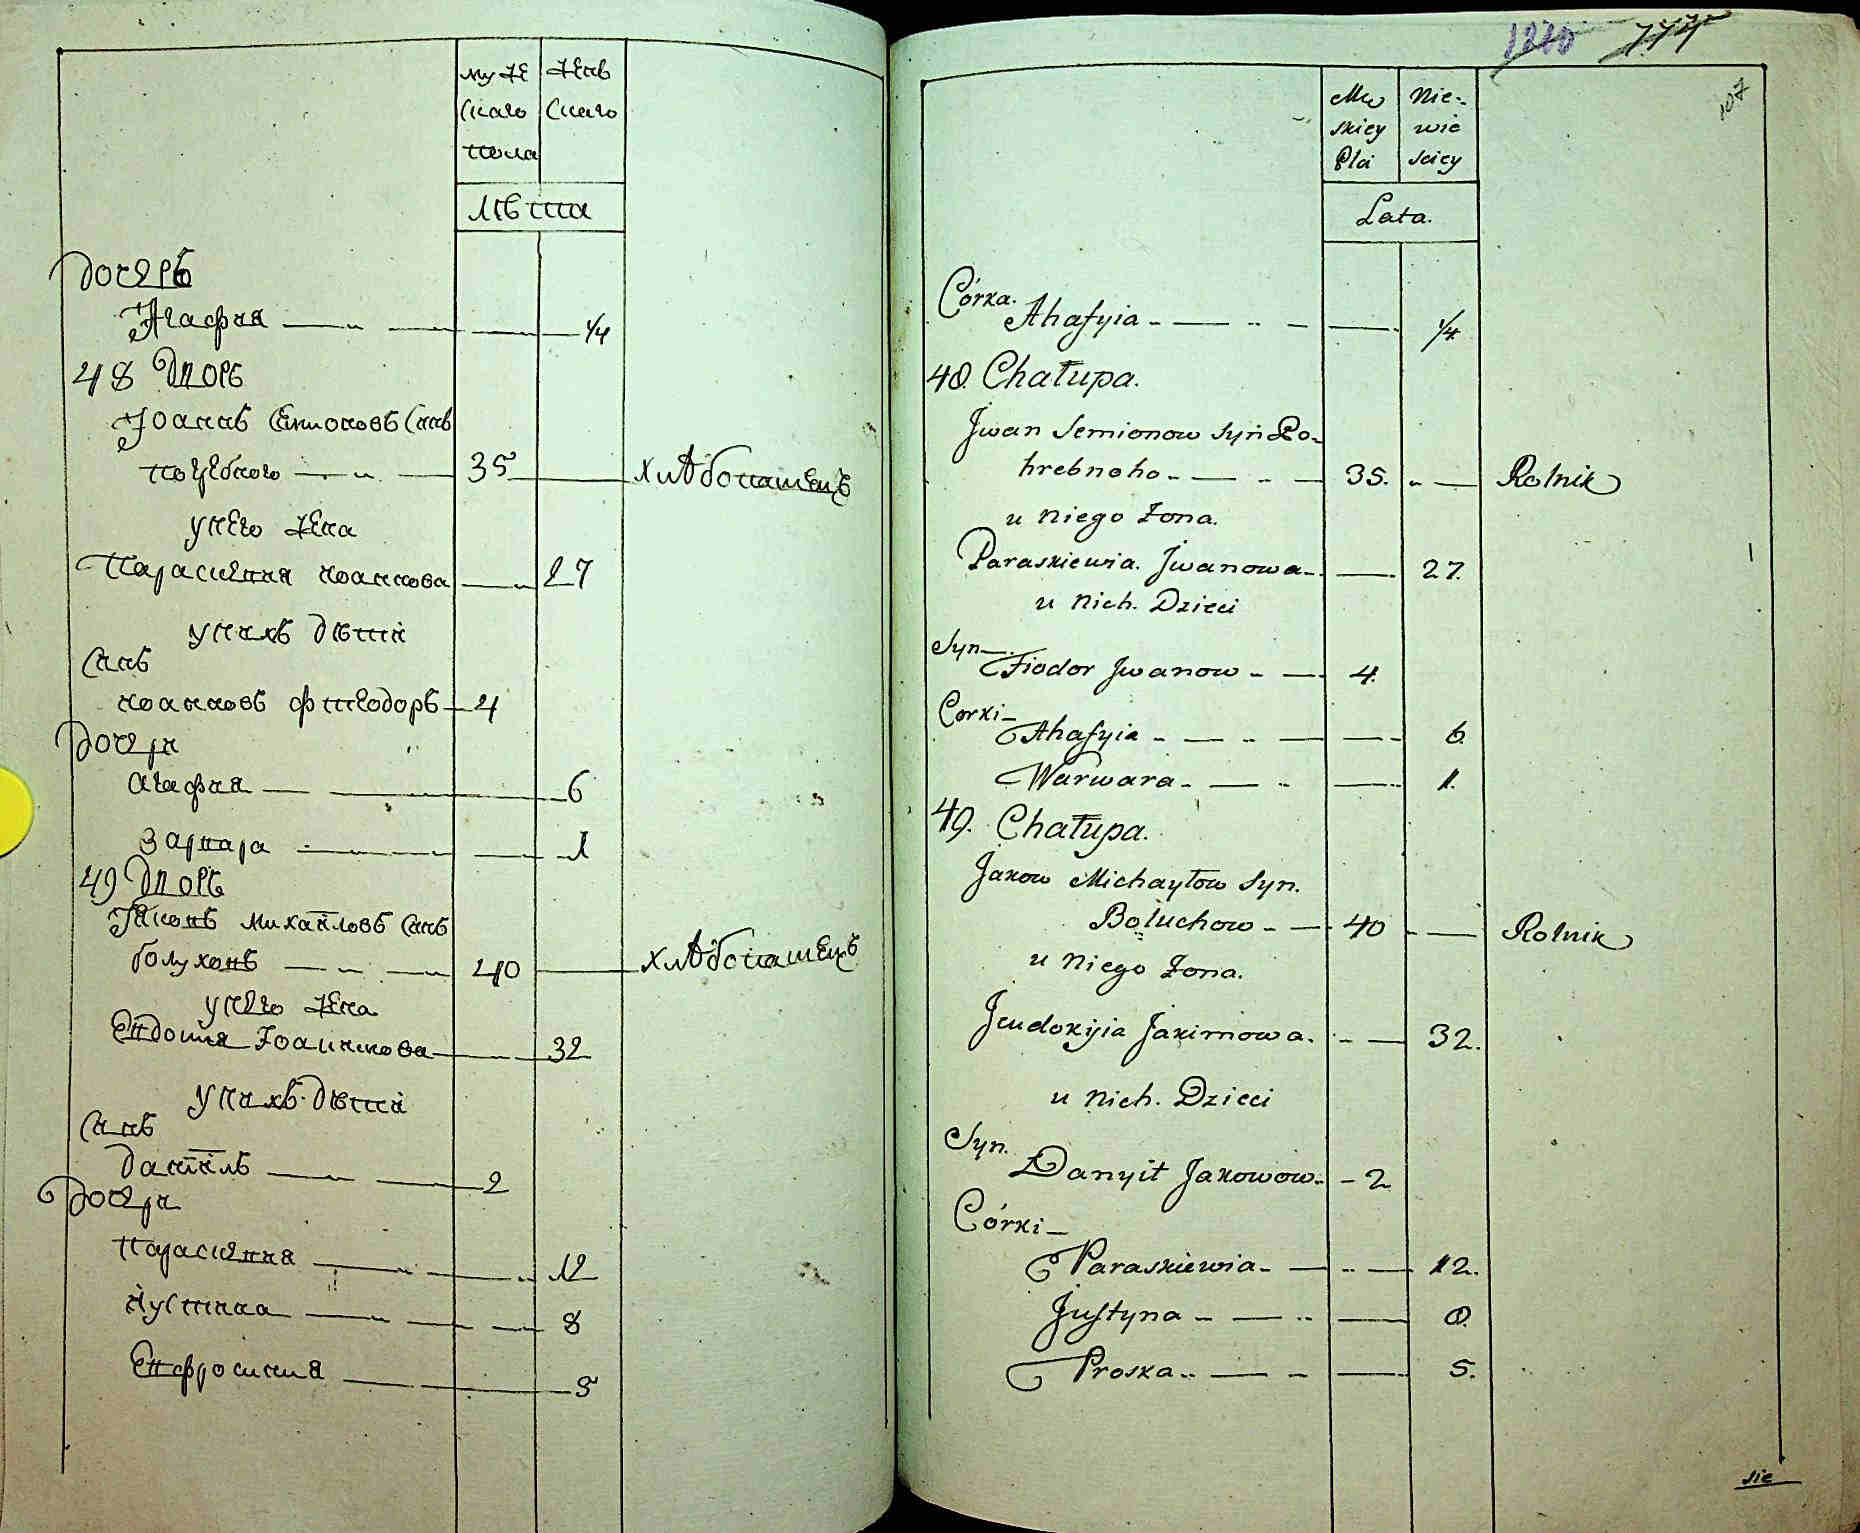 муже женс
скаго скаго
пола
лѣта
дочерь
Агафия 1/4
48 дворъ
Иоаннъ Симоновъ синъ
погребного 35 хлѣбопашецъ
у него жена
Параскевия иоаннова 27
у нихъ дѣти
Синъ
иоанновъ фтеодоръ 4
дочери
агафия 6
варвара 1
49 дворъ
Яковъ михайловъ синъ
болуховъ 40 хлѣбопашецъ
у него жена
Евдокия Иоакимова 32
у нихъ дѣти
Синъ
даніилъ 2
дочери
параскевия 12
иустина 8
Евфросиния 5
1820 774
107
Mę Nie-
skiey wie
Płci sciey
Lata.
Córka.
Ahafyia 1/4
48. Chałupa.
Jwan Semionow Syn Po-
hrebnoho 35. Rolnik
u niego Żona.
Paraskiewia Jwanowa 27.
u nich Dzieci
Syn
Fiodor Jwanow 4.
Corki
Ahafyia 6.
Warwara 1.
49. Chałupa.
Jakow Michayłow Syn.
Bołuchow 40 Rolnik
u niego Żona.
Jeudokijia Jakimowa 32.
u nich Dzieci
Syn.
Danyił Jakowow 2
Córki
Paraskiewia 12.
Justyna 8.
Proska 5.
sie